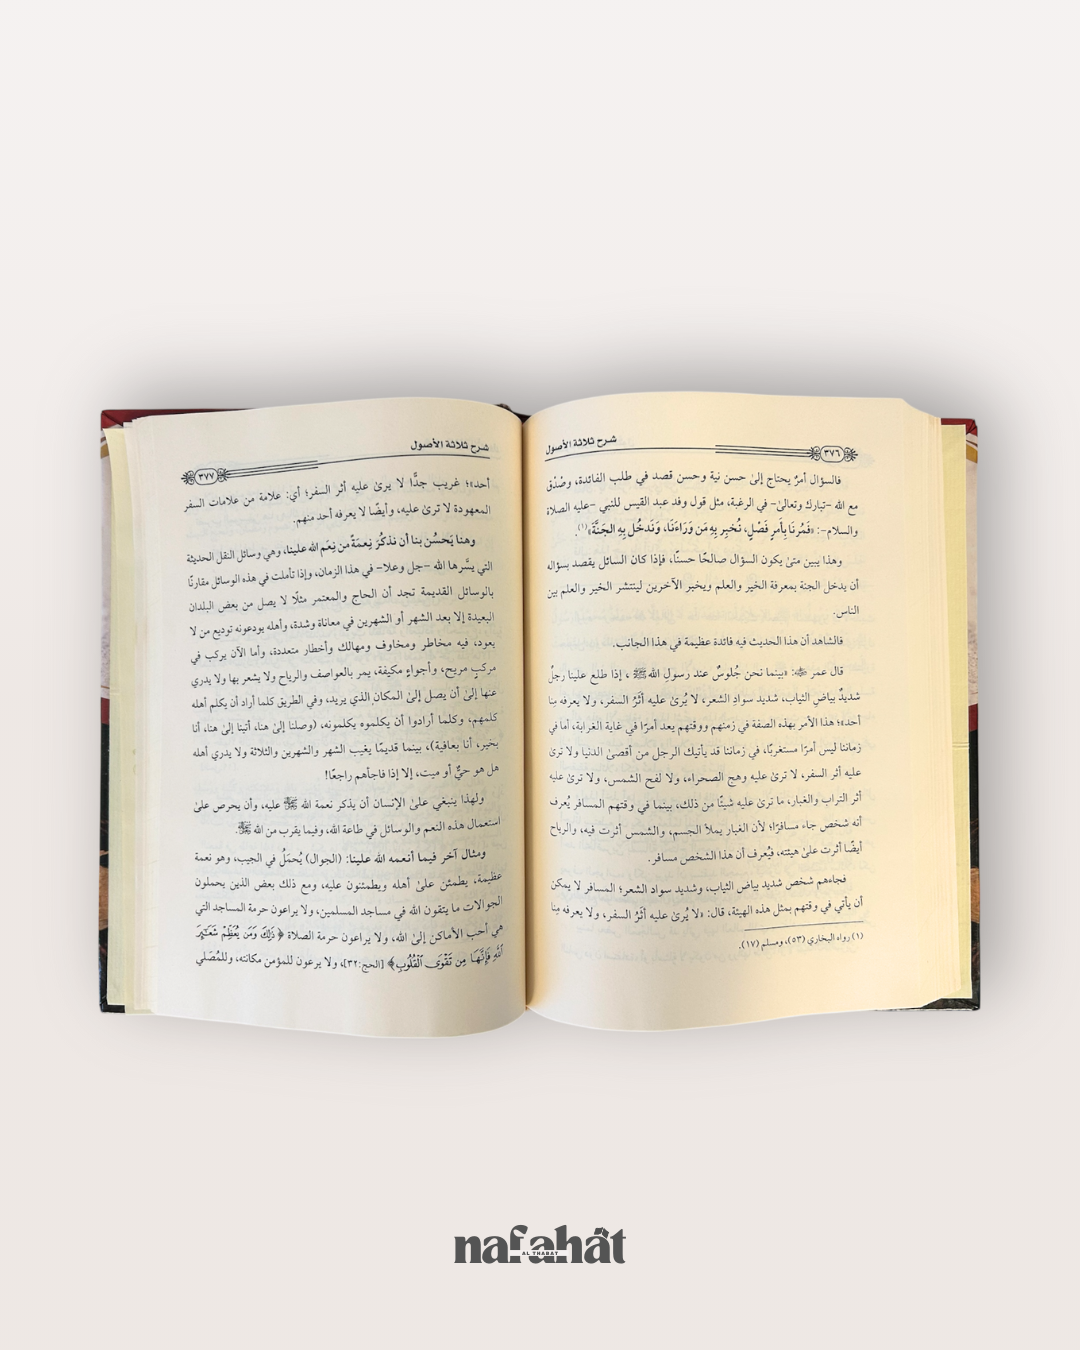 شرح ثلاثة الأصول
٣٧٦
فالسؤال أمرٌ يحتاج إلىٰ حسن نية وحسن قصد في طلب الفائدة، وصُدْق
مع الله -تبارك وتعالىٰ- في الرغبة، مثل قول وفد عبد القيس للنبي -عليه الصلاة
والسلام-: «فَمُرنَا بِأَمرٍ فَصْلٍ، نُخبِر بِهِ مَن وَرَاءَنَا، وَنَدخُل بِهِ الجَنَّةَ»(١).
وهذا يبين متىٰ يكون السؤال صالحًا حسنًا، فإذا كان السائل يقصد بسؤاله
أن يدخل الجنة بمعرفة الخير والعلم ويخبر الآخرين لينتشر الخير والعلم بين
الناس.
فالشاهد أن هذا الحديث فيه فائدة عظيمة في هذا الجانب.
قال عمر ﵁: «بينما نحن جُلوسٌ عند رسولِ الله ﷺ ، إذا طلع علينا رجلٌ
شديدٌ بياضِ الثياب، شديد سوادِ الشعر، لا يُرىٰ عليه أَثَرُ السفر، ولا يعرفه مِنا
أحد»؛ هذا الأمر بهذه الصفة في زمنهم ووقتهم يعد أمرًا في غاية الغرابة، أما في
زماننا ليس أمرًا مستغربًا، في زماننا قد يأتيك الرجل من أقصىٰ الدنيا ولا ترىٰ
عليه أثر السفر، لا ترىٰ عليه وهج الصحراء، ولا لفح الشمس، ولا ترىٰ عليه
أثر التراب والغبار، ما ترىٰ عليه شيئًا من ذلك، بينما في وقتهم المسافر يُعرف
أنه شخص جاء مسافرًا؛ لأن الغبار يملأ الجسم، والشمس أثرت فيه، والرياح
أيضًا أثرت علىٰ هيئته، فيُعرف أن هذا الشخص مسافر.
فجاءهم شخص شديد بياض الثياب، وشديد سواد الشعر؛ المسافر لا يمكن
أن يأتي في وقتهم بمثل هذه الهيئة، قال: «لا يُرىٰ عليه أَثَرُ السفر، ولا يعرفه مِنا
(١) رواه البخاري (٥٣)، ومسلم (١٧).
شرح ثلاثة الأصول
٣٧٧
أحد»؛ غريب جدًّا لا يرىٰ عليه أثر السفر؛ أي: علامة من علامات السفر
المعهودة لا ترىٰ عليه، وأيضًا لا يعرفه أحد منهم.
وهنا يَحسُن بنا أن نذكُرَ نِعمَةٌ من نِعَم الله علينا، وهي وسائل النقل الحديثة
التي يسَّرها الله -جل وعلا- في هذا الزمان، وإذا تأملت في هذه الوسائل مقارنًا
بالوسائل القديمة تجد أن الحاج والمعتمر مثلًا لا يصل من بعض البلدان
البعيدة إلا بعد الشهر أو الشهرين في معاناة وشدة، وأهله يودعونه توديع من لا
يعود، فيه مخاطر ومخاوف ومهالك وأخطار متعددة، وأما الآن يركب في
مركبٍ مريح، وأجواءٍ مكيفة، يمر بالعواصف والرياح ولا يشعر بها ولا يدري
عنها إلىٰ أن يصل إلىٰ المكان الذي يريد، وفي الطريق كلما أراد أن يكلم أهله
كلمهم، وكلما أرادوا أن يكلموه يكلمونه، (وصلنا إلىٰ هنا، أتينا إلىٰ هنا، أنا
بخير، أنا بعافية)، بينما قديمًا يغيب الشهر والشهرين والثلاثة ولا يدري أهله
هل هو حيٌّ أو ميت، إلا إذا فاجأهم راجعًا!
ولهذا ينبغي علىٰ الإنسان أن يذكر نعمة الله عليه، وأن يحرص علىٰ
استعمال هذه النعم والوسائل في طاعة الله، وفيما يقرب من الله.
ومثال آخر فيما أنعمه الله علينا: (الجوال) يُحمَلُ في الجيب، وهو نعمة
عظيمة، يطمئن علىٰ أهله ويطمئنون عليه، ومع ذلك بعض الذين يحملون
الجوالات ما يتقون الله في مساجد المسلمين، ولا يراعون حرمة المساجد التي
هي أحب الأماكن إلىٰ الله، ولا يراعون حرمة الصلاة ﴿ذَٰلِكَ وَمَن يُعَظِّمْ شَعَٰٓئِرَ
ٱللَّهِ فَإِنَّهَا مِن تَقْوَى ٱلْقُلُوبِ﴾ [الحج:٣٢]، ولا يرعون للمؤمن مكانته، وللمُصَلي
nafahât
AL THABAT